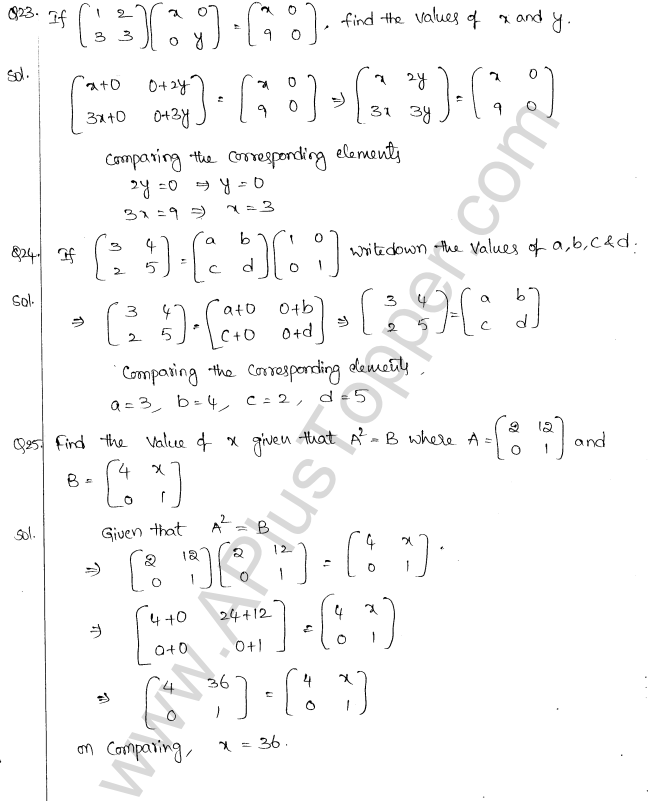 Q23. If [1 2; 3 3] [x 0; 0 y] = [x 0; 9 0], find the values of x and y.
Sol.
[x+0 0+2y; 3x+0 0+3y] = [x 0; 9 0] ⇒ [x 2y; 3x 3y] = [x 0; 9 0]
Comparing the corresponding elements
2y=0 ⇒ y=0
3x=9 ⇒ x=3
Q24. If [3 4; 2 5] = [a b; c d] [1 0; 0 1] write down the values of a,b,c & d.
Sol.
⇒ [3 4; 2 5] = [a+0 0+b; c+0 0+d] ⇒ [3 4; 2 5] = [a b; c d]
Comparing the corresponding elements,
a=3, b=4, c=2, d=5
Q25. Find the value of x given that A² = B where A = [2 12; 0 1] and
B = [4 x; 0 1]
Sol. Given that A² = B
⇒ [2 12; 0 1] [2 12; 0 1] = [4 x; 0 1].
⇒ [4+0 24+12; 0+0 0+1] = [4 x; 0 1]
⇒ [4 36; 0 1] = [4 x; 0 1]
on comparing, x = 36.
www.APlusTopper.com